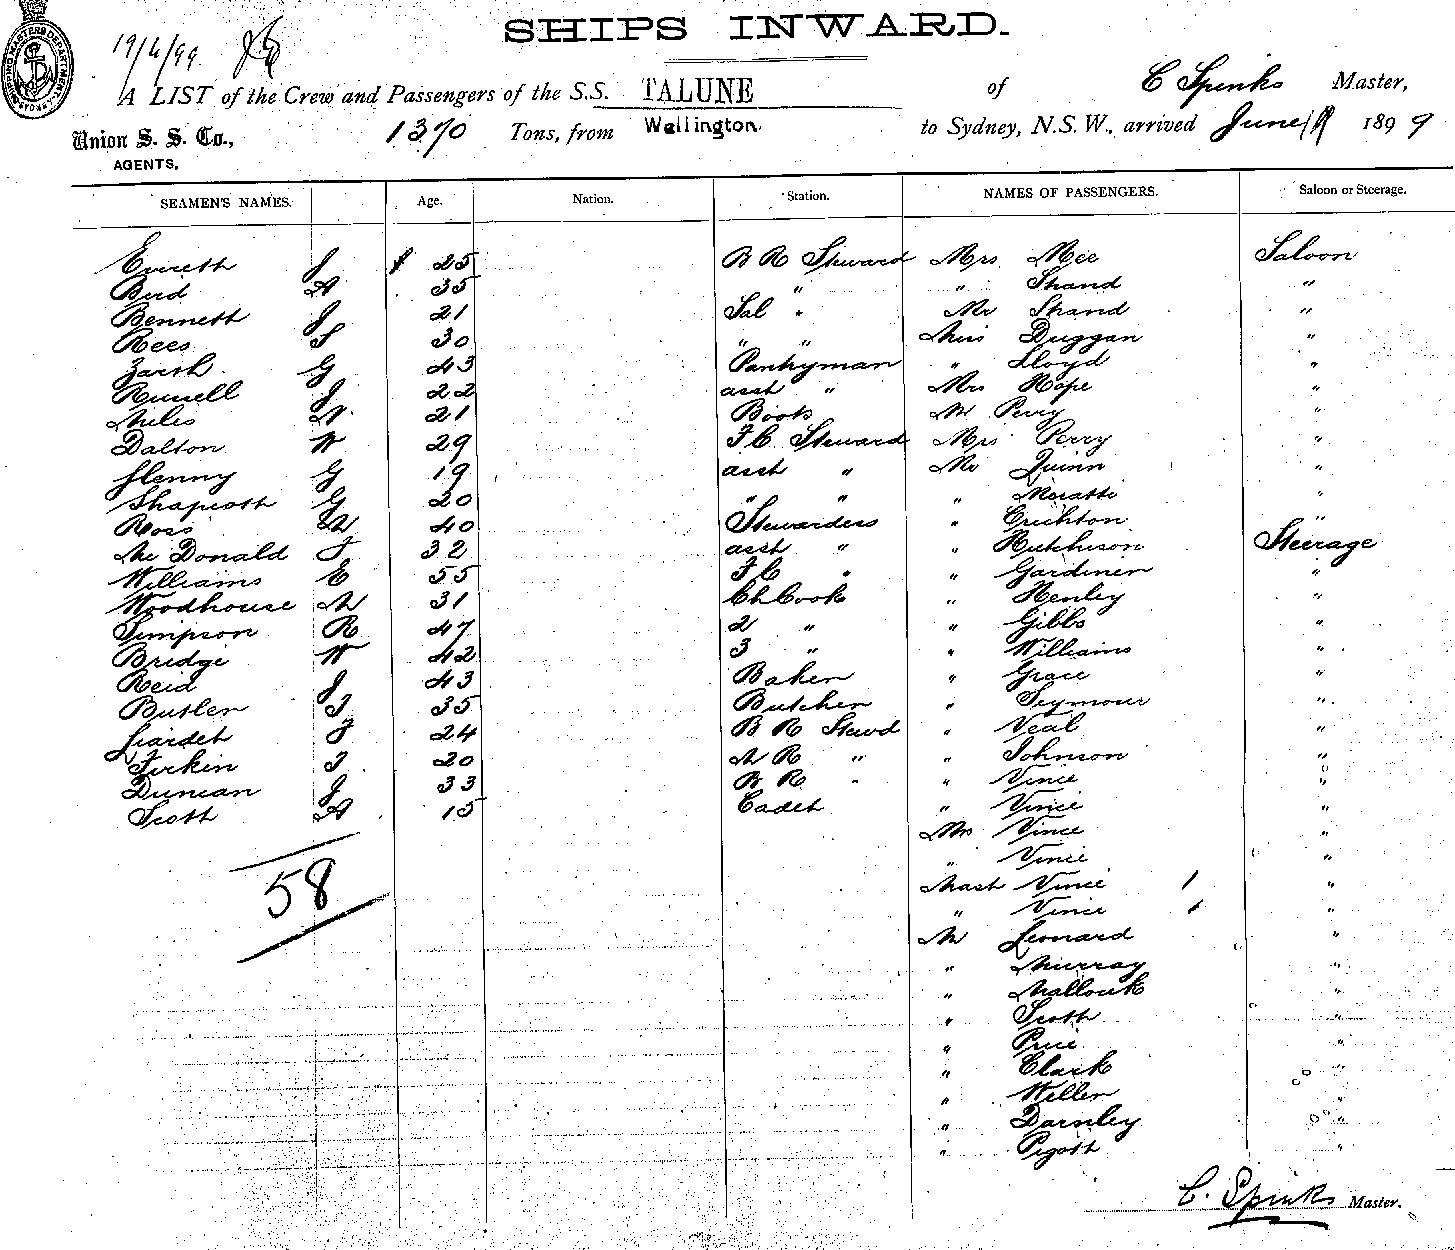 SHIPS INWARD.
19/6/99
A LIST of the Crew and Passengers of the S.S. TALUNE of C Spinks Master,
Union S. S. Co., 1370 Tons, from Wellington. to Sydney, N.S.W., arrived June 189 9
AGENTS,
SEAMEN'S NAMES. Age. Nation. Station. NAMES OF PASSENGERS. Saloon or Steerage.
Everett J 25 B R Steward Mrs Mee Saloon
Bird A 35 " " Shand "
Bennett J 21 Sal " Mr Shand "
Rees S 30 " " Miss Duggan "
G 43 Pantryman " Lloyd "
Russell J 22 asst " Mrs Hope "
Miles 21 Boots Mr Perry "
Dalton W 29 F C Steward Mrs Perry "
G 19 asst " Mr Quinn "
Shapcott G 20 " " " Moratti "
Ross 40 Stewardess " Crichton "
Mc Donald F 32 asst " " Hutchison Steerage
Williams E 55 F C " " Gardiner "
Woodhouse M 31 Ch Cook " Henley "
Simpson R 47 2 " " Gibbs "
Bridge W 42 3 " " Williams "
Reid J 43 Baker " Grace "
Butler T 35 Butcher " Seymour "
Liardet F 24 B R Stewd " Veal "
Firkin T 20 M R " " Johnson "
Duncan J 33 B R " " Vince "
Scott A 15 Cadet " Vince "
Mrs Vince "
" Vince "
58 Mast Vince 1 "
" Vince 1 "
Mr Leonard "
" Murray "
" "
" Scott "
" Price "
" Clark "
" Weller "
" Darnley "
" Pigott "
C. Spinks Master.